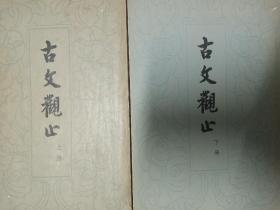 古文觀止
上冊
古文觀止
下冊